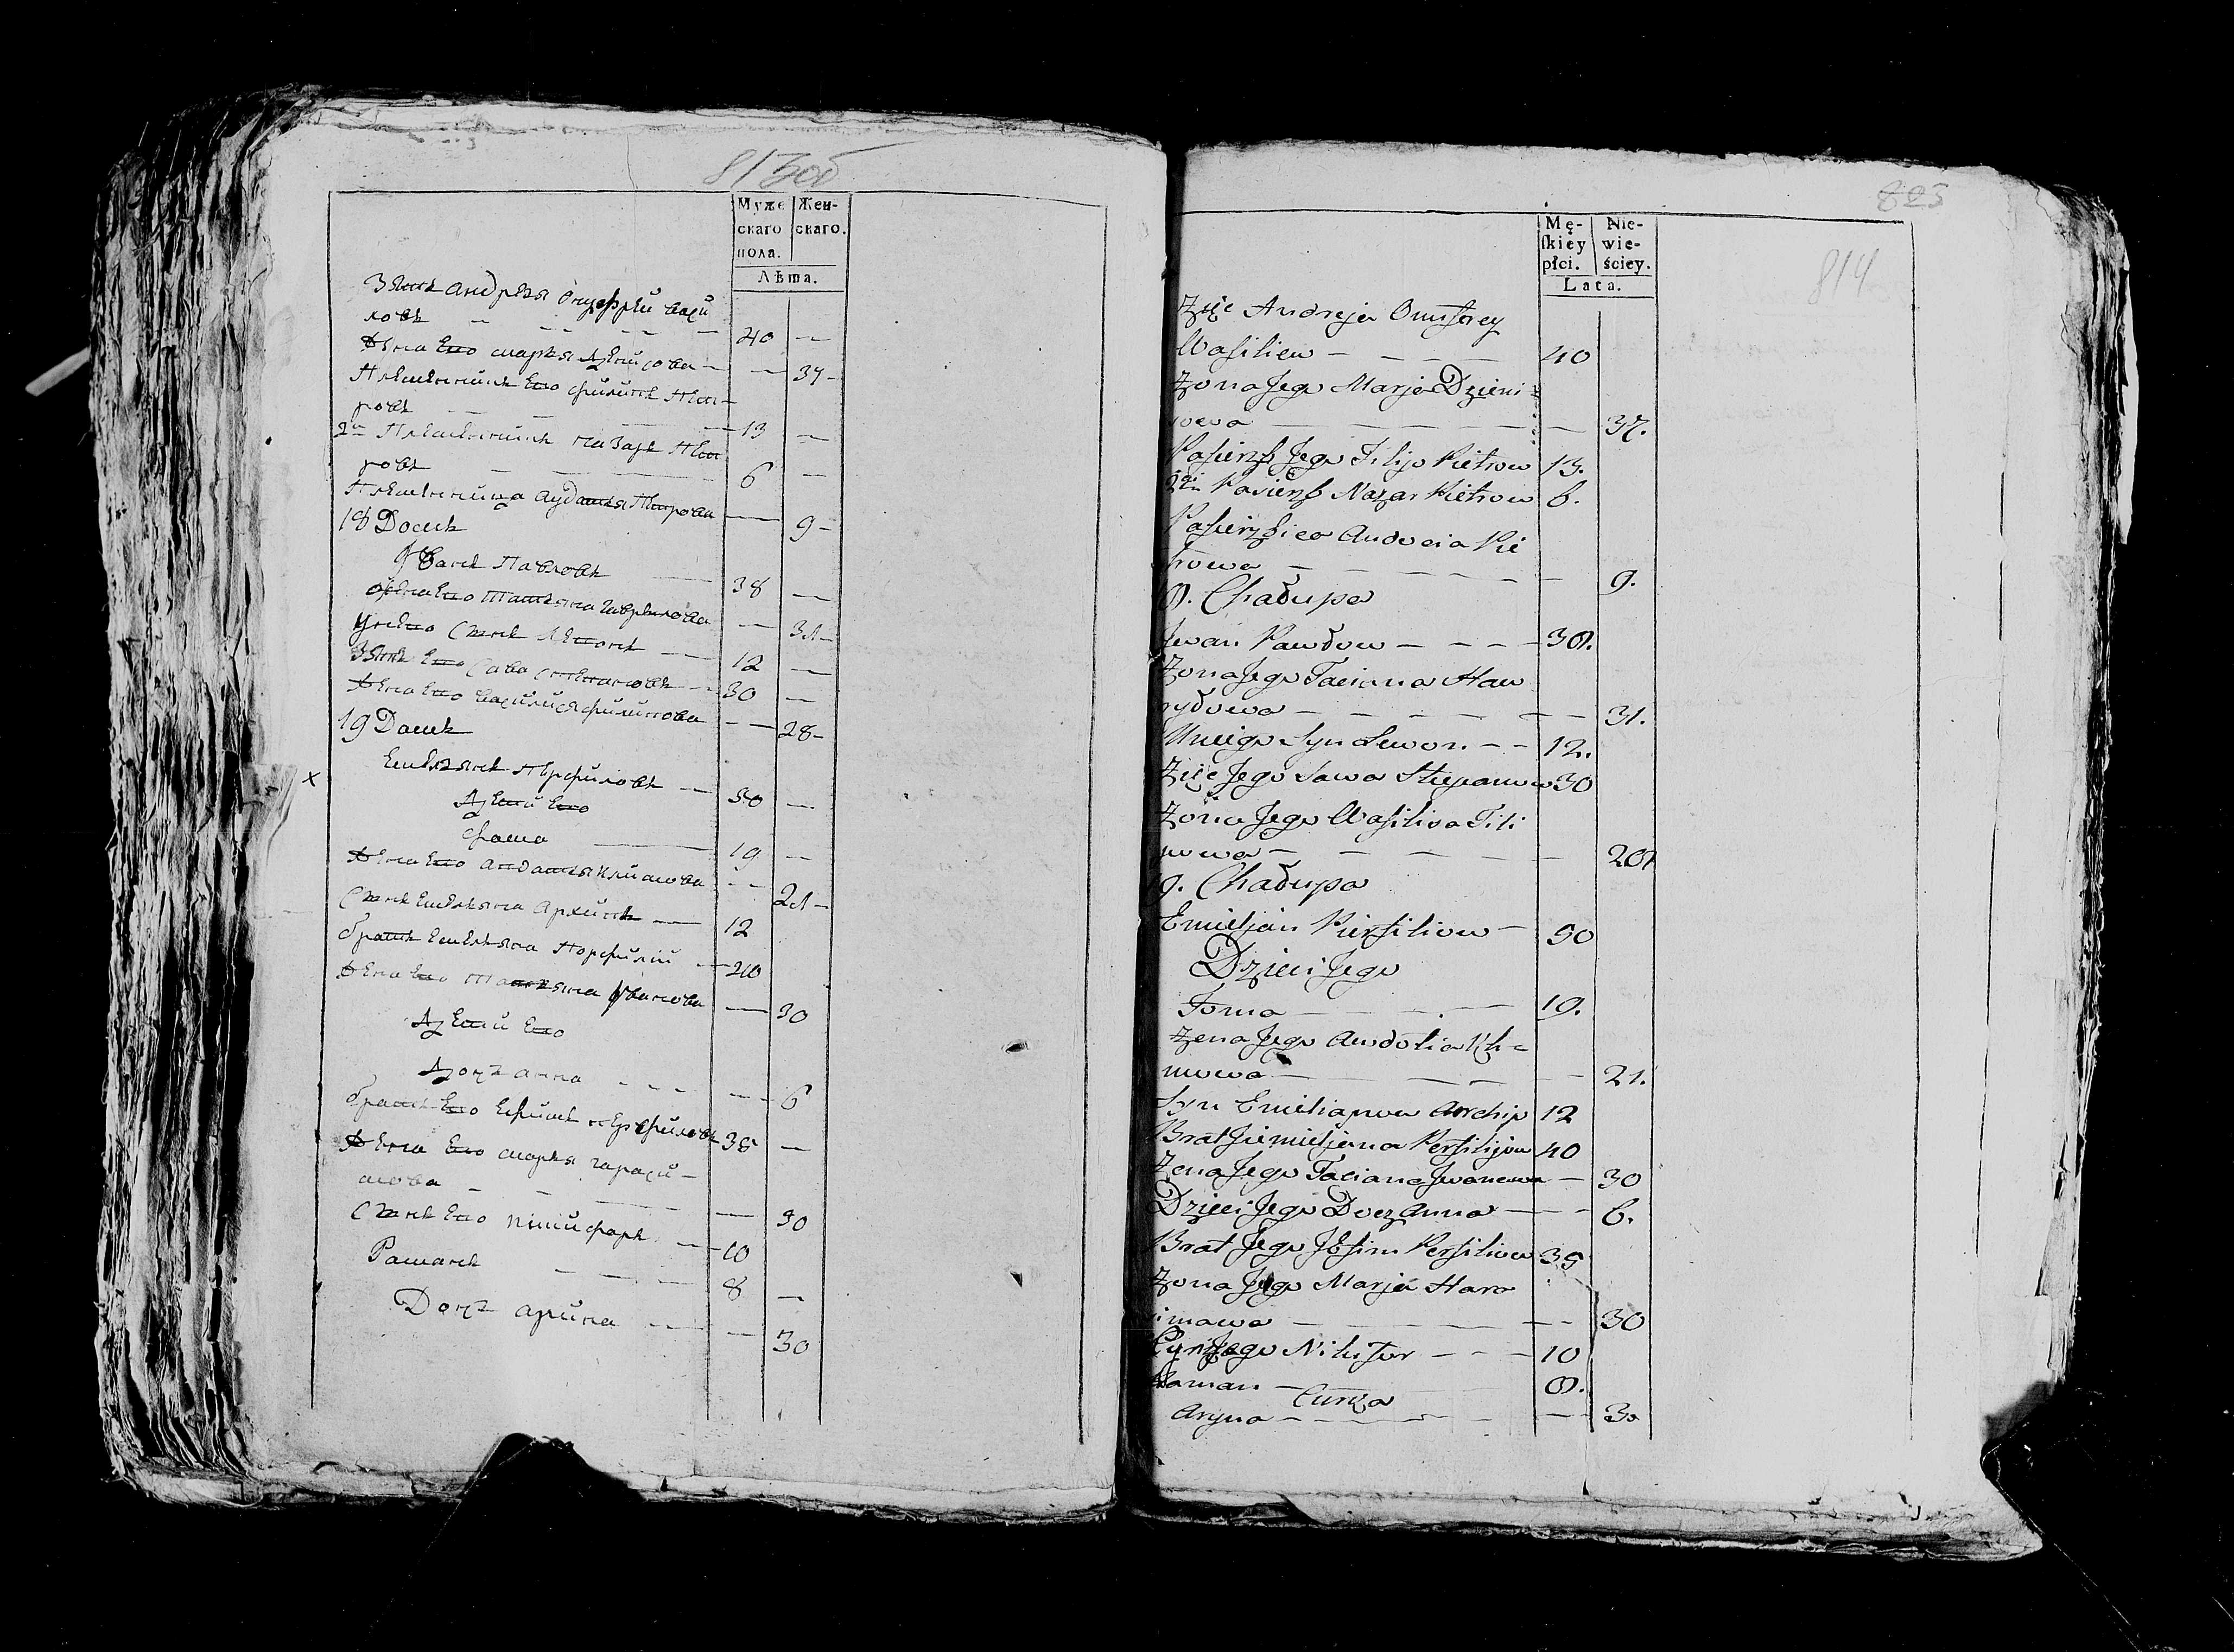 813об
Муже
скаго
пола.
Жен-
скаго.
Лѣта.
Зять андрѣя Онуфрей васи
ловъ 40 —
жена Его марья Денисова — 37 —
Племенникъ Его филипъ Пет-
ровъ 13 —
2й Племенникъ назаръ Пет
ровъ 6 —
Племенница аудатья Петрова — 9 —
18 Домъ
Иванъ Павловъ 38 —
жена Его татьяна гаврилова — 31 —
У него сынъ левонъ 12 —
Зять Его сава степановъ 30 —
жена Его василися филипова — 28 —
19 Домъ
х Емельянъ Перфиловъ 50 —
Дети Его
фома 19 —
жена Его авдатья климова — 21 —
сынъ Емельяна архипъ 12
братъ Емельяна Порфилий 40
жена Его татьяна Иванова — 30
Дети Его
Дочь анна — 6
братъ Его Ефимъ перфиловъ 35 —
жена Его марья гараси-
мова — 30
сынъ Его никифаръ 10
Раманъ 8 —
Дочь арина — 30
823
814
Mę-
ſkiey
płci.
Nie-
wie-
ściey.
Lata.
Zięc Andreja Onufrey
Wasiliew — 40
Zona Jego Marja Dzieni-
sowa — 37.
Pasierzb Jego Filip Pietrow 13.
2gi Pasierzb Nazar Pietrow 6.
Pasierzbica Audocia Pie
trowa — 9.
8. Chałupa
Jwan Pawłow — 38.
Zona Jego Taciana Haw
ryłowa — 31.
U niego Syn Lewon — 12.
Zięc Jego Sawa Stepanow 30
Zona Jego Wasilisa Fili
powa — 28
9. Chałupa
Emieljan Pierfiliow — 50
Dzieci Jego
Foma — 19.
Zena Jego Awdotia Kli-
mowa — 21.
Syn Emielianowa Archip 12
Brat Jiemieljana Perfilijon 40
Zena Jego Taciana Jwanowa — 30
Dzieci Jego Docz Anna — 6.
Brat Jego Jefim Perfiliow 35
Zona Jego Marja Hara
simowa — 30
Syn Jego Nikifor — 10
Raman — 8.
Curka
Aryna — 30